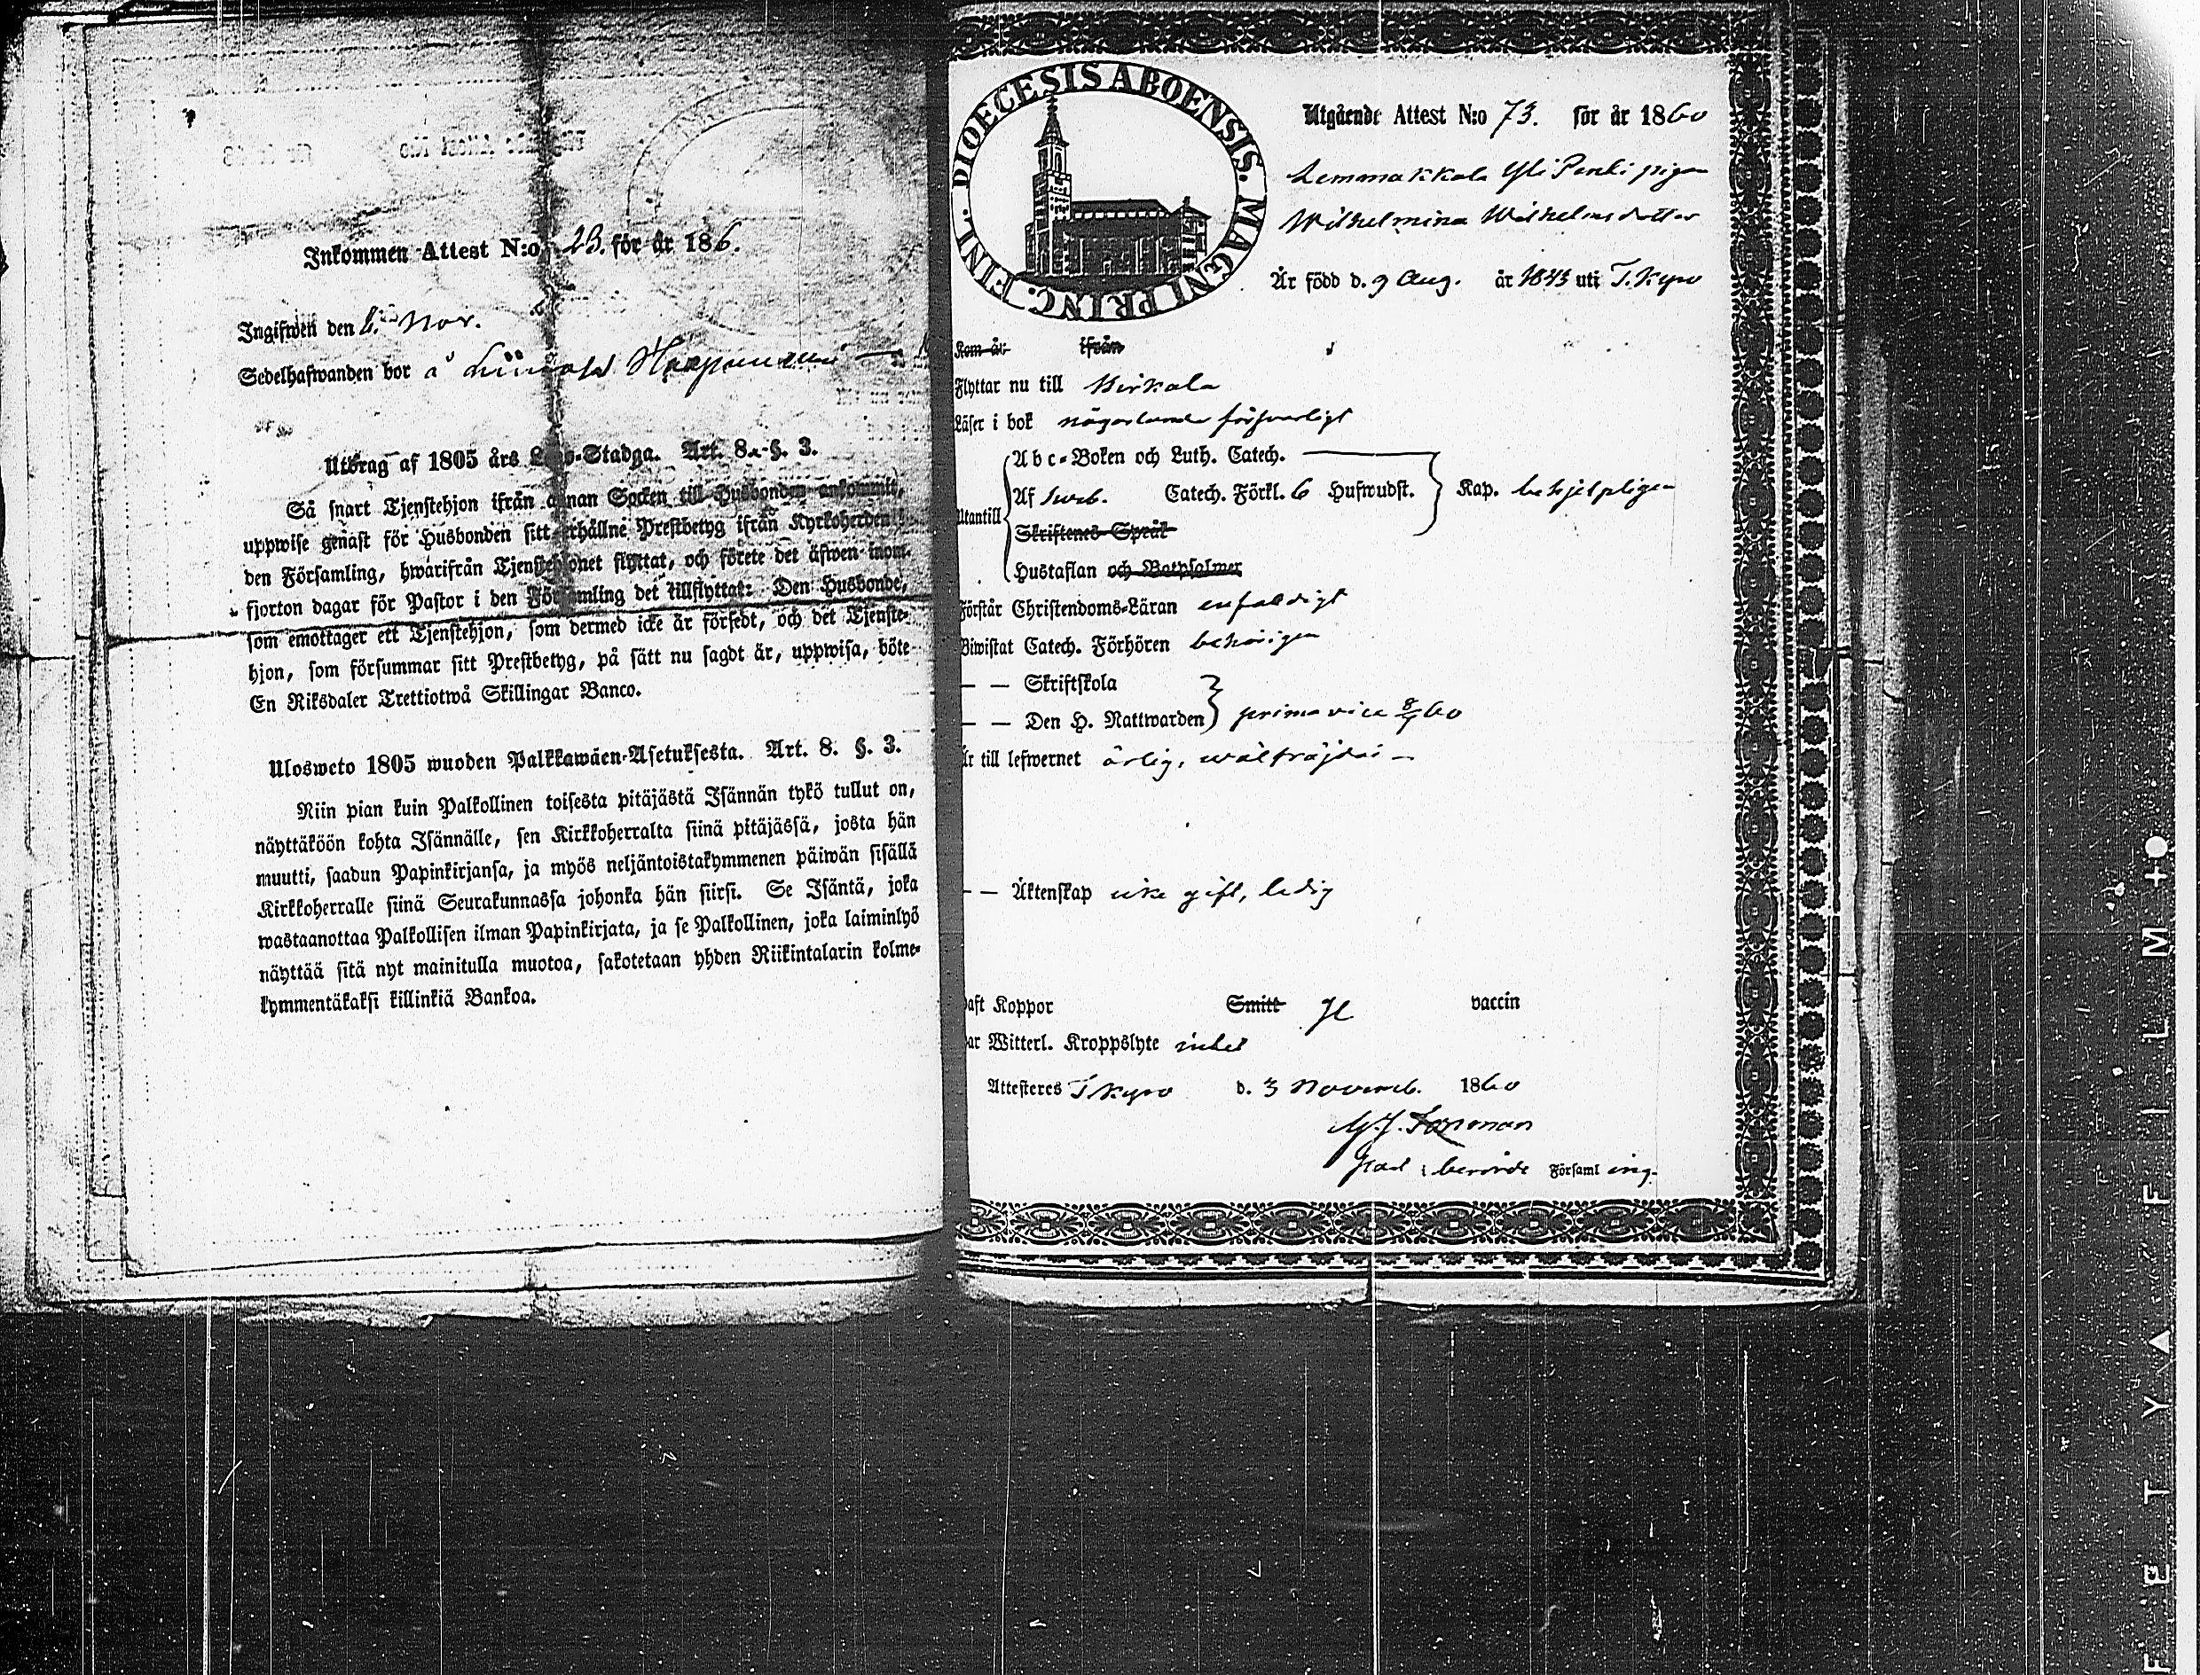 Inkommen Attest N:o 23. för år 186.
Ingifwen den Nov.
Sedelhafwanden bor å
Utdrag af 1805 års Lego-Stadga. Art. 8. §. 3.
Så snart Tjenstehjon ifrån annan Socken till Husbonden ankommit,
uppwise genast för Husbonden sitt erhållne Prestbetyg ifrån Kyrkoherden i
den Församling, hwarifrån Tjenstehjonet flyttat, och förete det äfwen inom
fjorton dagar för Pastor i den Församling det tillflyttat: Den Husbonde,
som emottager ett Tjenstehjon, som dermed icke är försedt, och det Tjenste-
hjon, som försummar sitt Prestbetyg, på sätt nu sagdt är, uppwisa, böte
En Riksdaler Trettiotwå Skillingar Banco.
Ulosweto 1805 wuoden Palkkawäen-Asetuksesta. Art. 8. §. 3.
Niin pian kuin Palkollinen toisesta pitäjästä Isännän tykö tullut on,
näyttäköön kohta Isännälle, sen Kirkkoherralta siinä pitäjässä, josta hän
muutti, saadun Papinkirjansa, ja myös neljäntoistakymmenen päiwän sisällä
Kirkkoherralle siinä Seurakunnassa johonka hän siirsi. Se Isäntä, joka
wastaanottaa Palkollisen ilman Papinkirjata, ja se Palkollinen, joka laiminlyö
näyttää sitä nyt mainitulla muotoa, sakotetaan yhden Riikintalarin kolme-
kymmentäkaksi killinkiä Bankoa.
DIOECESIS ABOENSIS. MAGNI PRINC. FINL.
Utgående Attest N:o 73. för år 1860
Lemmakkala Yli Penti pigan
Wilhelmina Wilhelmsdotter
Är född d. 9 Aug. år 1843 uti T. Kyro
Kom år ifrån
Flyttar nu till Birkala
Läser i bok någorlunda försvarligt
Abc-Boken och Luth. Catech.
Utantill Af Sveb. Catech. Förkl. 6 Hufwudst. Kap. behjelpligen
Skriftenes Språk
Hustaflan och Botpsalmer
Förstår Christendoms-Läran enfaldigt
Biwistat Catech. Förhören behörigen
— — Skriftskola
— — Den H. Nattwarden prima vice 8/7 60
Är till lefwernet ärlig, wälfräjdad
— — Äktenskap icke gift, ledig
Haft Koppor Smitt vaccin
Har Witterl. Kroppslyte intet
Attesteres T Kyro d. 3 Novemb. 1860
i berörde Församling.
SAFETY FILM